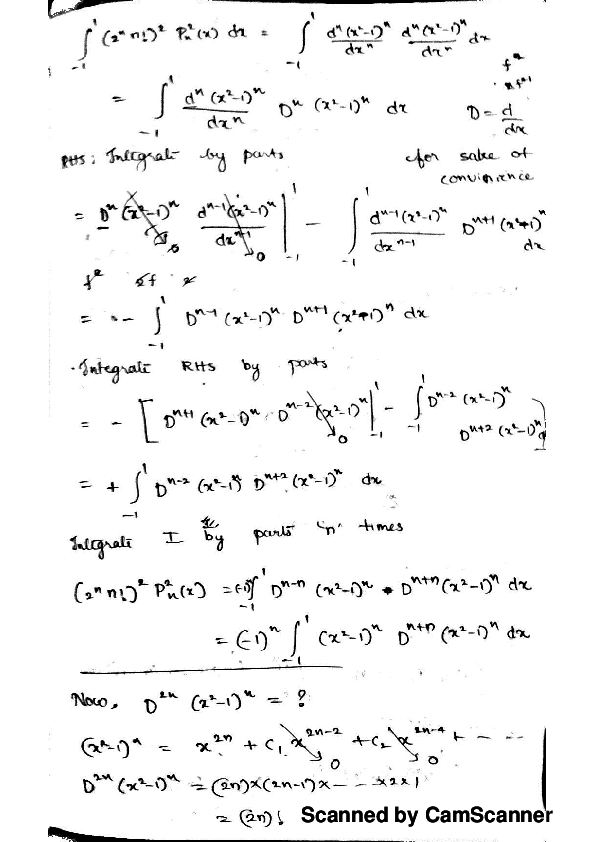 ∫₋₁¹ (2ⁿ n!)² Pₙ²(x) dx = ∫₋₁¹ dⁿ(x²-1)ⁿ/dxⁿ dⁿ(x²-1)ⁿ/dxⁿ dx
= ∫₋₁¹ dⁿ(x²-1)ⁿ/dxⁿ Dⁿ (x²-1)ⁿ dx D = d/dx
RHS: Integrate by parts for sake of
convinience
= Dⁿ(x²-1)ⁿ dⁿ⁻¹(x²-1)ⁿ/dxⁿ⁻¹ |₋₁¹ - ∫₋₁¹ dⁿ⁻¹(x²-1)ⁿ/dxⁿ⁻¹ Dⁿ⁺¹(x²-1)ⁿ dx
= - ∫₋₁¹ Dⁿ⁻¹(x²-1)ⁿ Dⁿ⁺¹(x²-1)ⁿ dx
· Integrate RHS by parts
= - [ Dⁿ⁺¹(x²-1)ⁿ · Dⁿ⁻²(x²-1)ⁿ |₋₁¹ - ∫₋₁¹ Dⁿ⁻²(x²-1)ⁿ Dⁿ⁺²(x²-1)ⁿ ]
= + ∫₋₁¹ Dⁿ⁻²(x²-1)ⁿ Dⁿ⁺²(x²-1)ⁿ dx
Integrate I by parts 'n' times
(2ⁿ n!)² Pₙ²(x) = (-1)ⁿ∫₋₁¹ Dⁿ⁻ⁿ (x²-1)ⁿ · Dⁿ⁺ⁿ(x²-1)ⁿ dx
= (-1)ⁿ ∫₋₁¹ (x²-1)ⁿ Dⁿ⁺ⁿ(x²-1)ⁿ dx
Now, D²ⁿ (x²-1)ⁿ = ?
(x²-1)ⁿ = x²ⁿ + C₁ x²ⁿ⁻² + C₂ x²ⁿ⁻⁴ + - - - -
D²ⁿ(x²-1)ⁿ = (2n)×(2n-1)× - - - ×2×1
= (2n)! Scanned by CamScanner